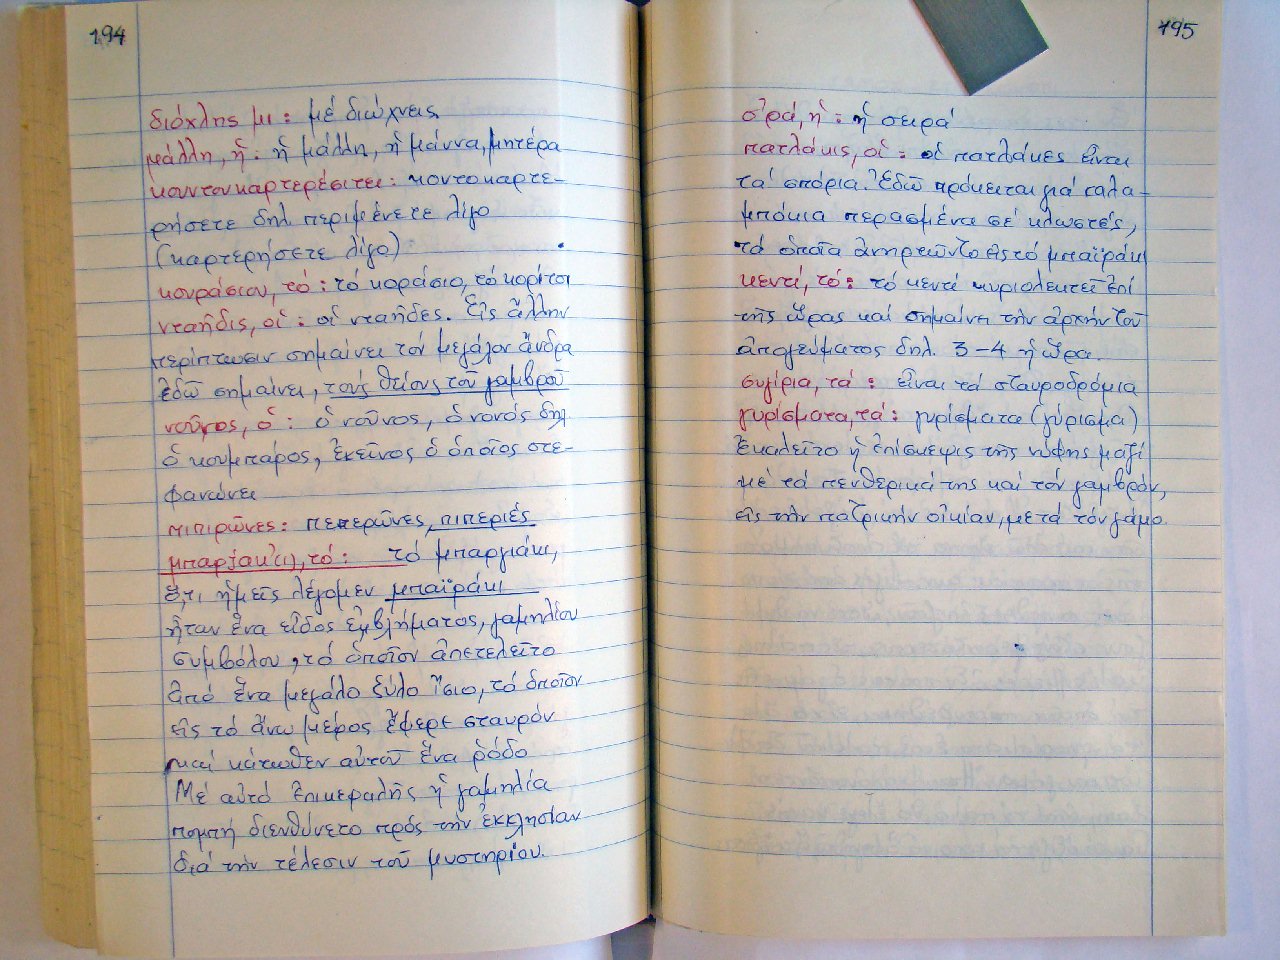 194
διόχλης μι: μέ διώχνεις
μάλλη, ἡ: ἡ μάλλη, ἡ μάννα, μητέρα
κουντουκαρτερέσιτει: κοντοκαρτε-
ρήσετε δηλ περιμένετε λίγο
(καρτερήσετε λίγο)
κουράσιου, τό: τό κοράσιο, τό κορίτσι
νταῆδις, οἱ: οἱ νταῆδες. Εἰς ἄλλην
περίπτωσιν σημαίνει τόν μεγάλον ἄνδρα
ἐδῶ σημαίνει, τούς θείους τοῦ γαμβροῦ
νοῦνος, ὁ: ὁ νοῦνος, ὁ νονός δηλ
ὁ κουμπάρος, ἐκεῖνος ὁ ὁποῖος στε-
φανώνει
πιπιρῶνες: πεπερῶνες, πιπεριές
τό: τό μπαργιάκι,
ὅ,τι ἡμεῖς λέγομεν μπαϊράκι
ἦταν ἕνα εἶδος ἐμβλήματος, γαμηλίου
συμβόλου, τό ὁποῖον ἀπετελεῖτο
ἀπό ἕνα μεγάλο ξύλο ἴσιο, τό ὁποῖον
εἰς τό ἄνω μέρος ἔφερε σταυρόν
καί κάτωθεν αὐτοῦ ἕνα ρόδο
Μέ αὐτό ἐπικεφαλῆς ἡ γαμηλία
πομπή διευθύνετο πρός τήν ἐκκλησίαν
διά τήν τέλεσιν τοῦ μυστηρίου.
195
σ'ρά, ἡ: ἡ σειρά
πατλάκις, οἱ: οἱ πατλάκες εἶναι
τά σπόρια. Ἐδῶ πρόκειται γιά καλα-
μπόκια περασμένα σέ κλωστές,
τά ὁποῖα ἀνηρτῶντο εἰς τό μπαϊράκι
κεντί, τό: τό κεντί κυριολεκτεῖ ἐπί
τῆς ὥρας καί σημαίνει τήν ἀρχήν τοῦ
ἀπογεύματος δηλ. 3-4 ἡ ὥρα.
συγίρια, τά: εἶναι τά σταυροδρόμια
γυρίσματα, τά: γυρίσματα (γύρισμα)
ἐκαλεῖτο ἡ ἐπίσκεψις τῆς νύφης μαζί
μέ τά πενθερικά της καί τόν γαμβρόν,
εἰς τήν πατρικήν οἰκίαν, μετά τόν γάμο.